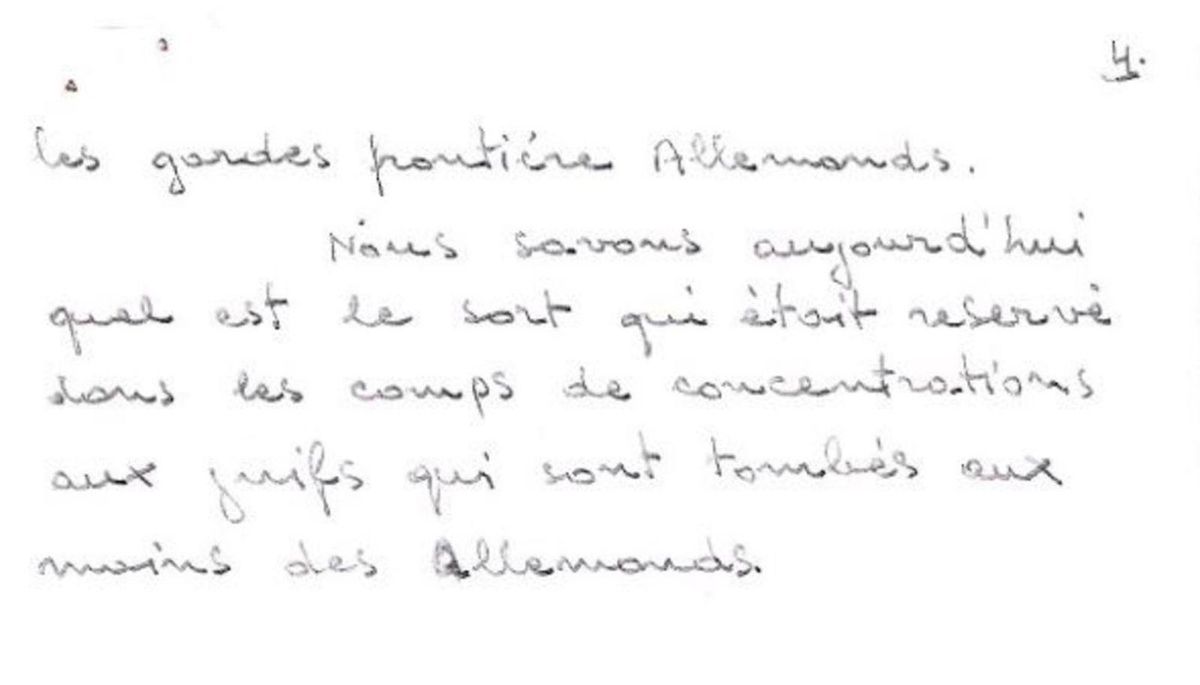 4.
les gardes frontiére Allemands.
Nous savons aujourd'hui
quel est le sort qui était reservé
dans les camps de concentrations
aux juifs qui sont tombés aux
mains des Allemands.